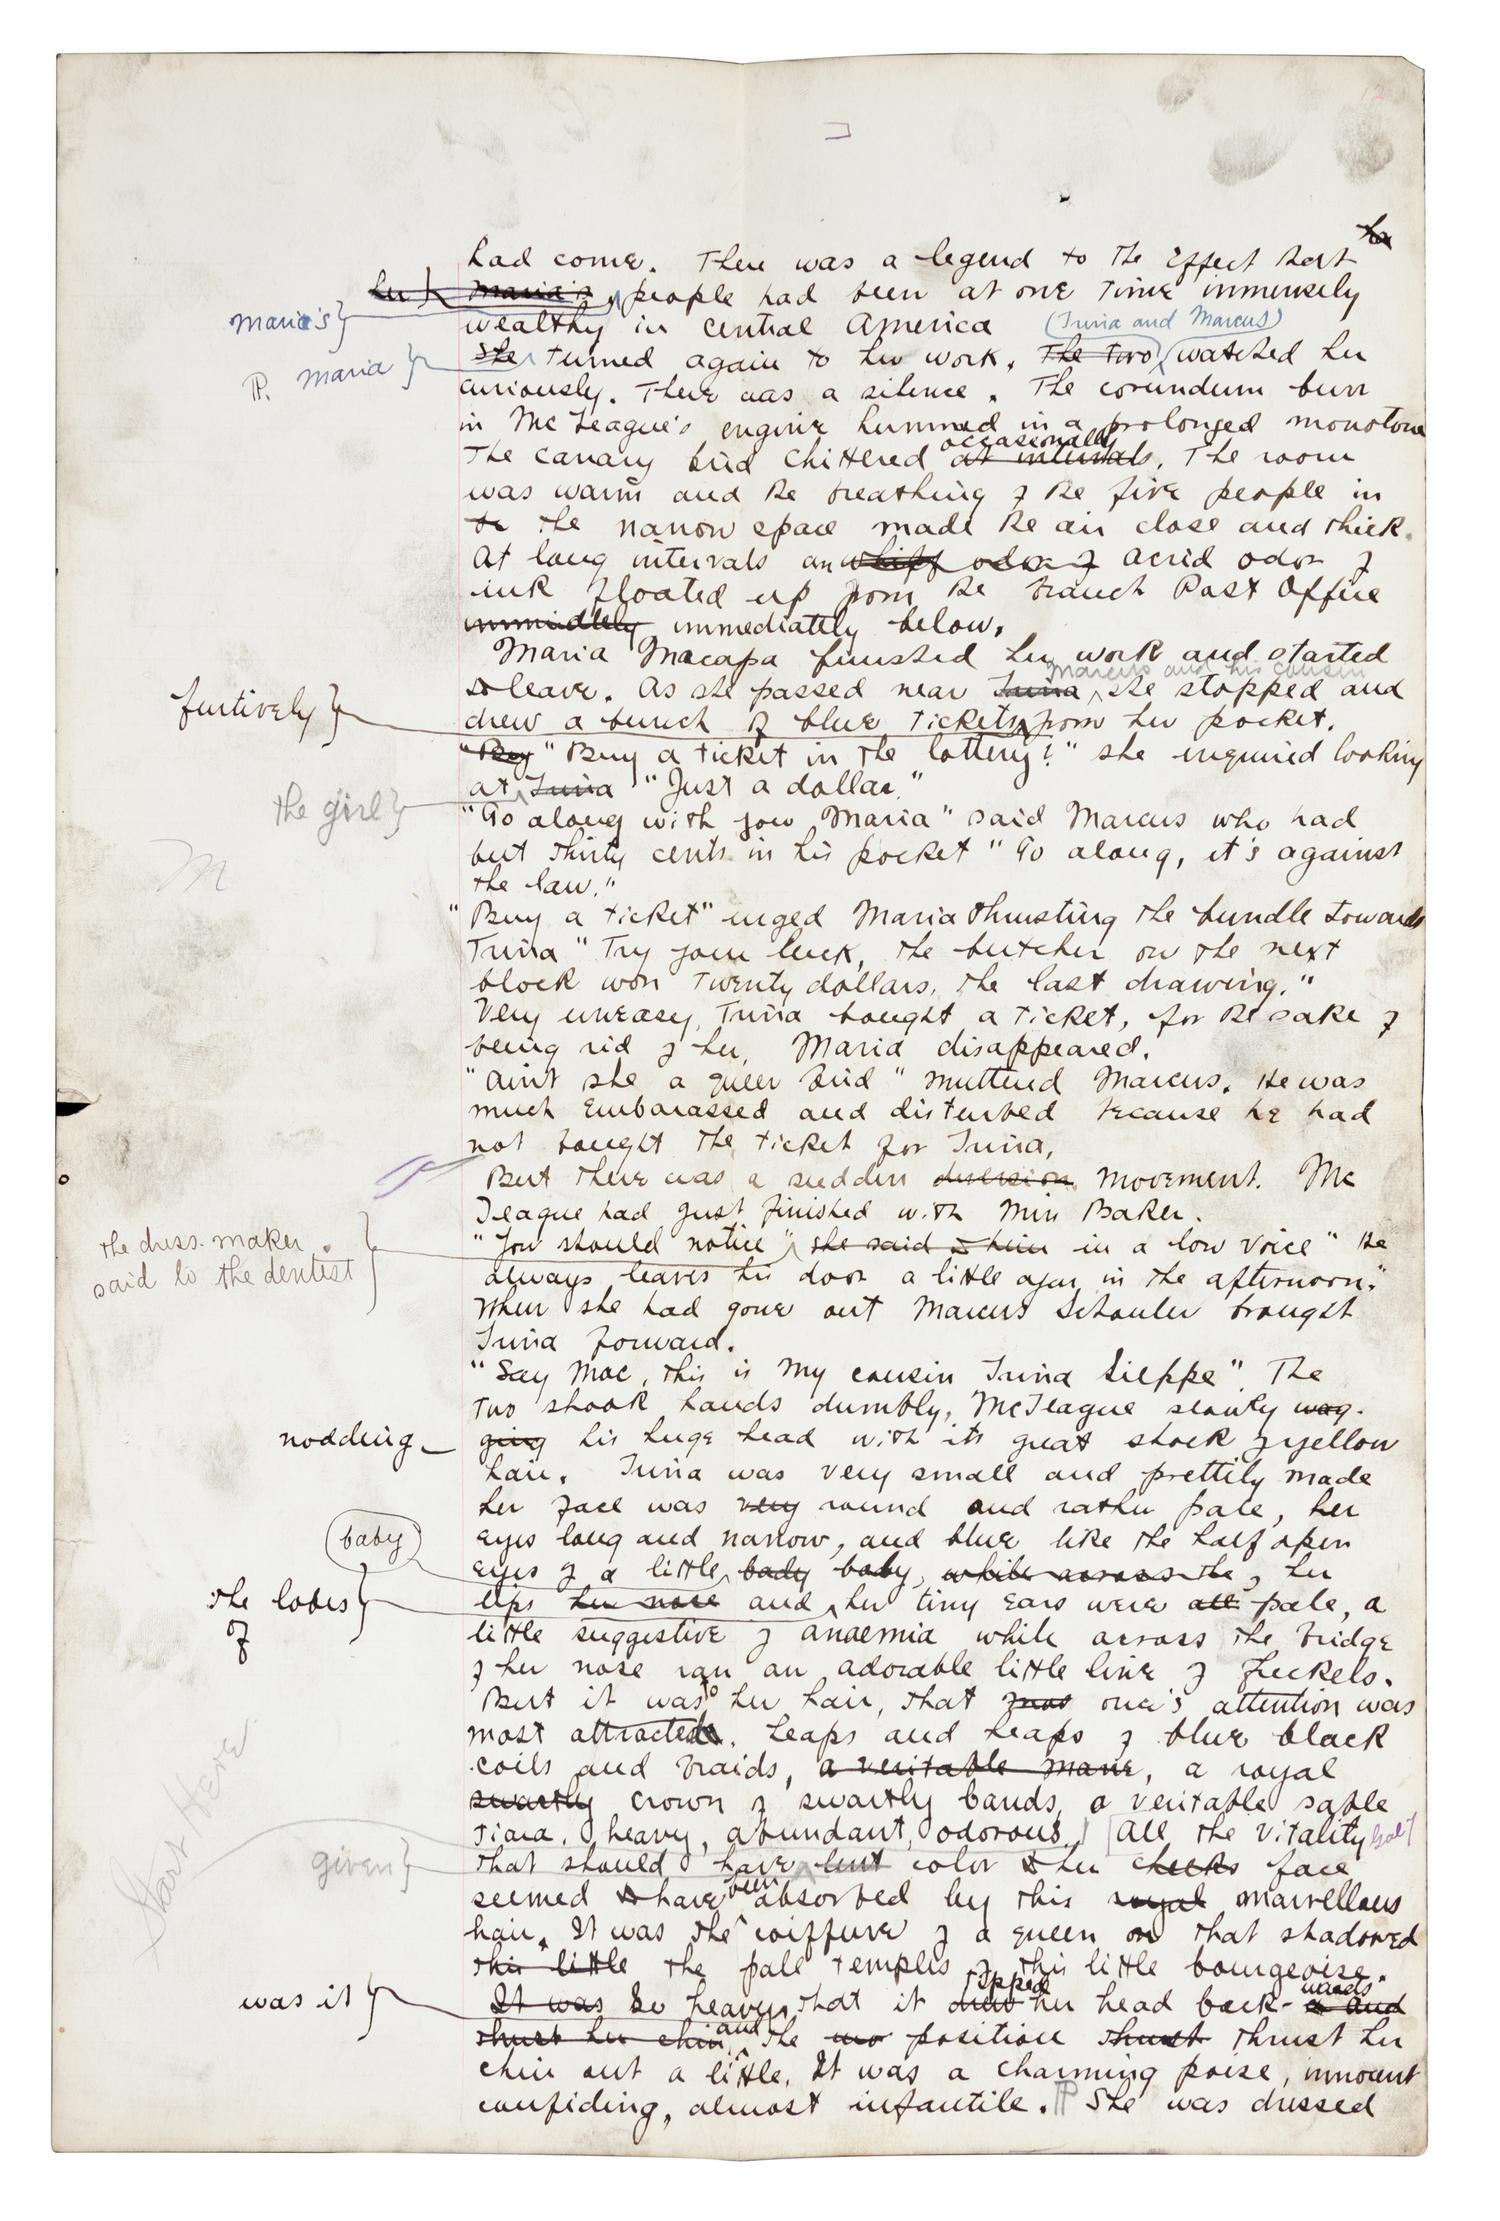 12
had come. There was a legend to the effect that her
her Maria's people had been at one time immensely
Maria's
wealthy in central America
(Trina and Marcus)
P. Maria
She turned again to her work. The two watched her
curiously. There was a silence. The corundum burr
in McTeague's engine hummed in a prolonged monotone
occasionally
The canary bird chittered at intervals. The room
was warm and the breathing of the five people in
the the narrow space made the air close and thick.
At long intervals an whiff odor of acrid odor of
ink floated up from the branch Post Office
immidtely immediately below.
Maria Macapa finished her work and started
Marcus and his cousin
to leave. As she passed near Trina she stopped and
furtively
drew a bunch of blue tickets from her pocket.
"Buy "Buy a ticket in the lottery?" she inquired looking
the girl
at Trina "Just a dollar."
"Go along with you Maria" said Marcus who had
but thirty cents in his pocket "Go along, it's against
the law."
"Buy a ticket" urged Maria thrusting the bundle towards
Trina "Try your luck, the butcher on the next
block won twenty dollars, the last drawing."
Very uneasy, Trina bought a ticket, for the sake of
being rid of her, Maria disappeared.
"Ain't she a queer bird" muttered Marcus. He was
much embarassed and disturbed because he had
not bought the ticket for Trina,
But there was a sudden diversion movement. Mc
Teague had just finished with Miss Baker.
the dress-maker
said to the dentist
"You should notice" she said to him in a low voice "He
always leaves his door a little ajar in the afternoon."
When she had gone out Marcus Schouler brought
Trina forward.
"Say Mac, this is my cousin Trina Sieppe". The
two shook hands dumbly, McTeague slowly wag-
nodding
ging his huge head with its great shock of yellow
hair. Trina was very small and prettily made
her face was very round and rather pale, her
baby
eyes long and narrow, and blue like the half open
eyes of a little bady baby, while across the, her
the lobes
of
lips her nose and her tiny ears were all pale, a
little suggestive of anaemia while across the bridge
of her nose ran an adorable little line of freckels.
But it was to her hair, that most one's attention was
most attracted. heaps and heaps of blue black
coils and braids, a veritable mane, a royal
swartly crown of swartly bands, a veritable sable
tiara, heavy, abundant, odorous. All the vitality
Start Here
given
that should have lent color to her cheeks face
been
seemed to have absorbed by this royal marvellous
hair. It was the coiffure of a queen on that shadowed
this little the pale temples of this little bourgeoise.
was it
tipped
wards
It was So heavy that it drew her head back- and
and
thrust her chin the position thrust thrust her
chin out a little. It was a charming poise, innocent
confiding, almost infantile. P She was dressed